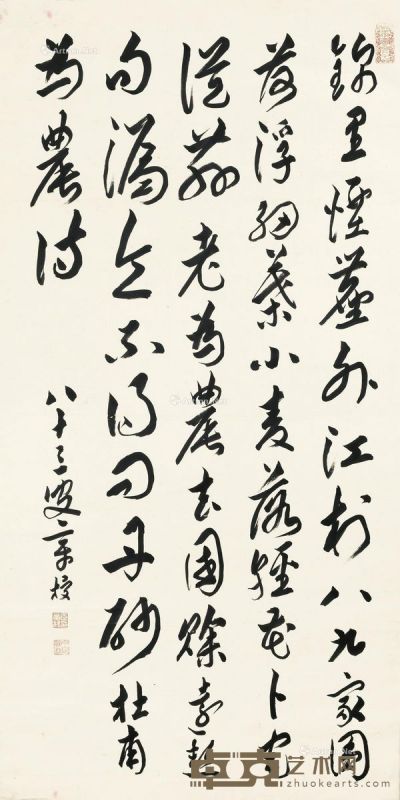 錦里煙塵外江村八九家圓
荷浮細葉小麥落輕花卜宅
從茲老為農去國賒遠慙
句漏令不得問丹砂杜甫
為農詩
八十三叟
卓克艺术网
zhuokearts.com